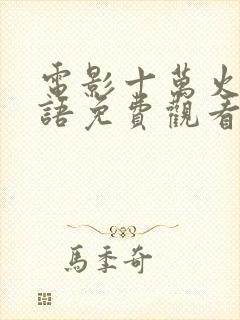 電影十萬火
語免費觀看
馬季奇